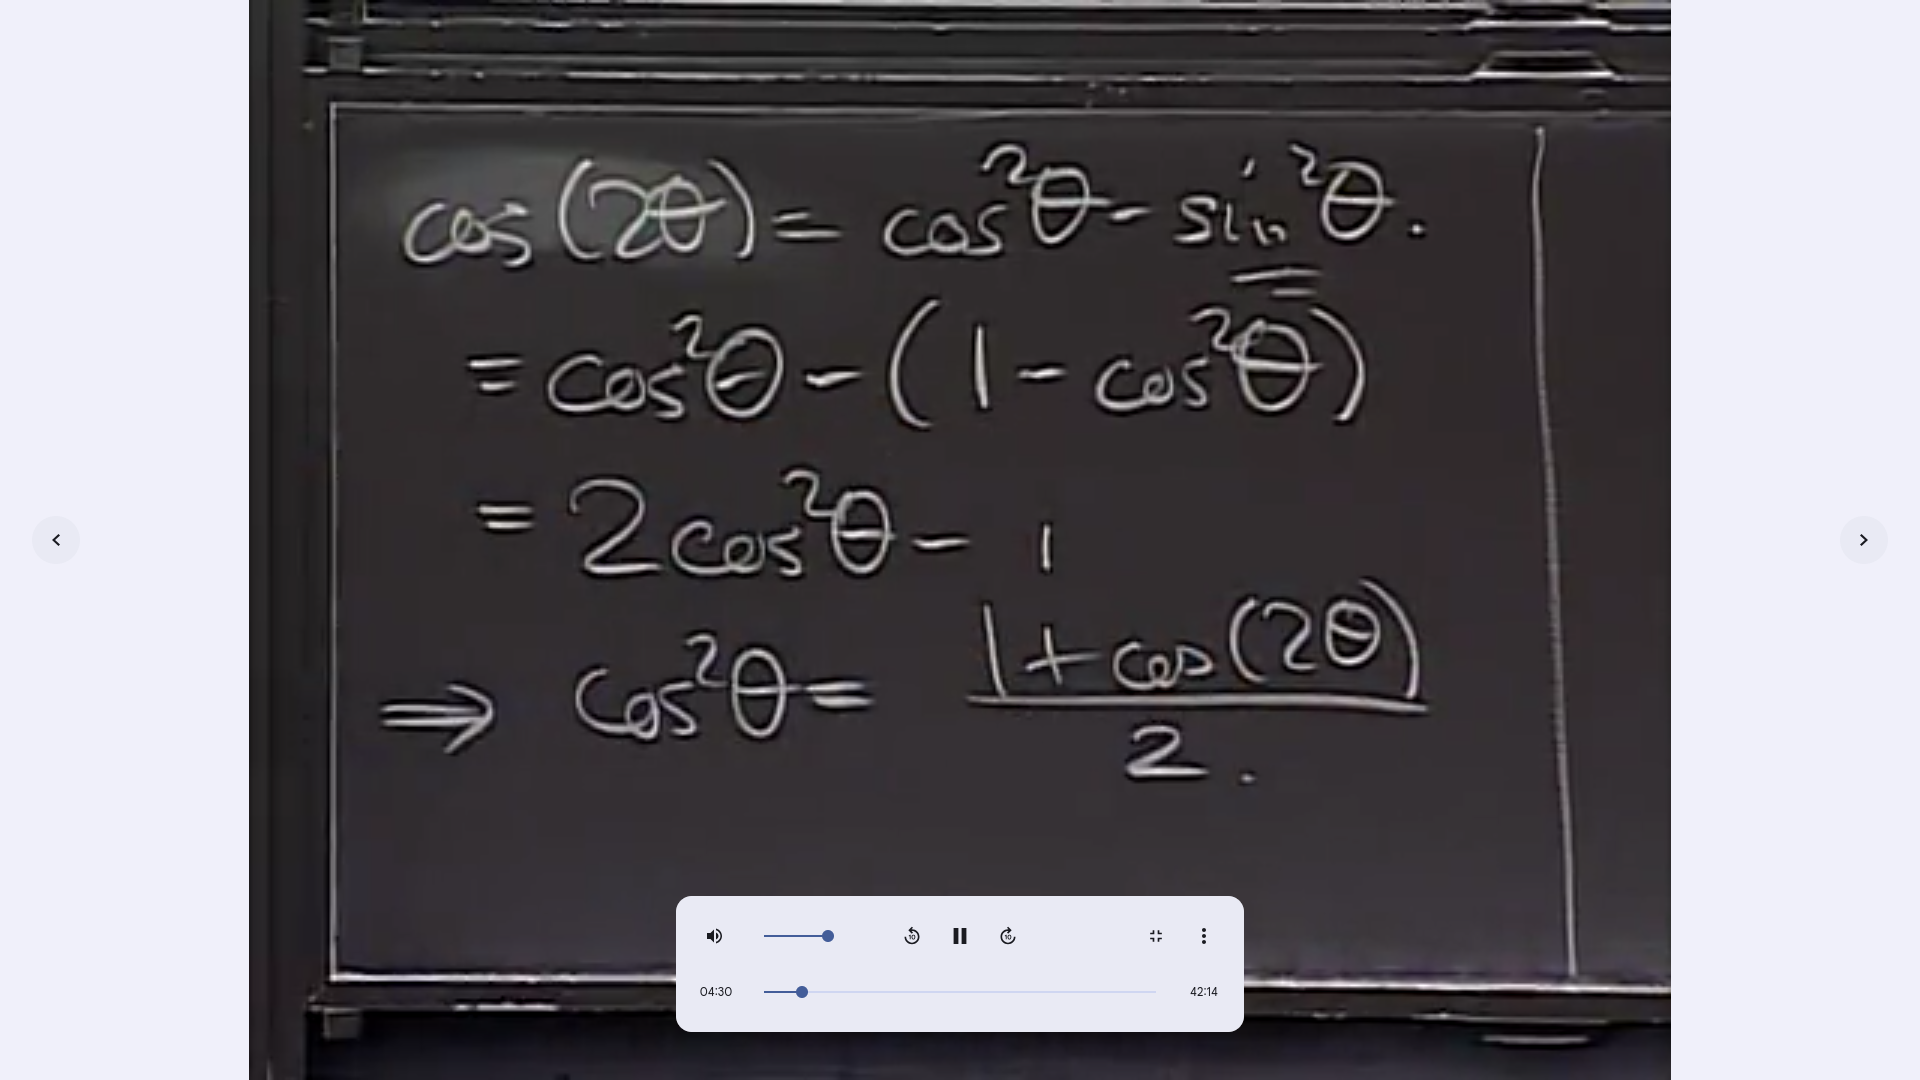 cos(2θ) = cos²θ - sin²θ.
= cos²θ - (1 - cos²θ)
= 2cos²θ - 1
⇒ cos²θ = (1 + cos(2θ))/2.
10
10
04:30
42:14